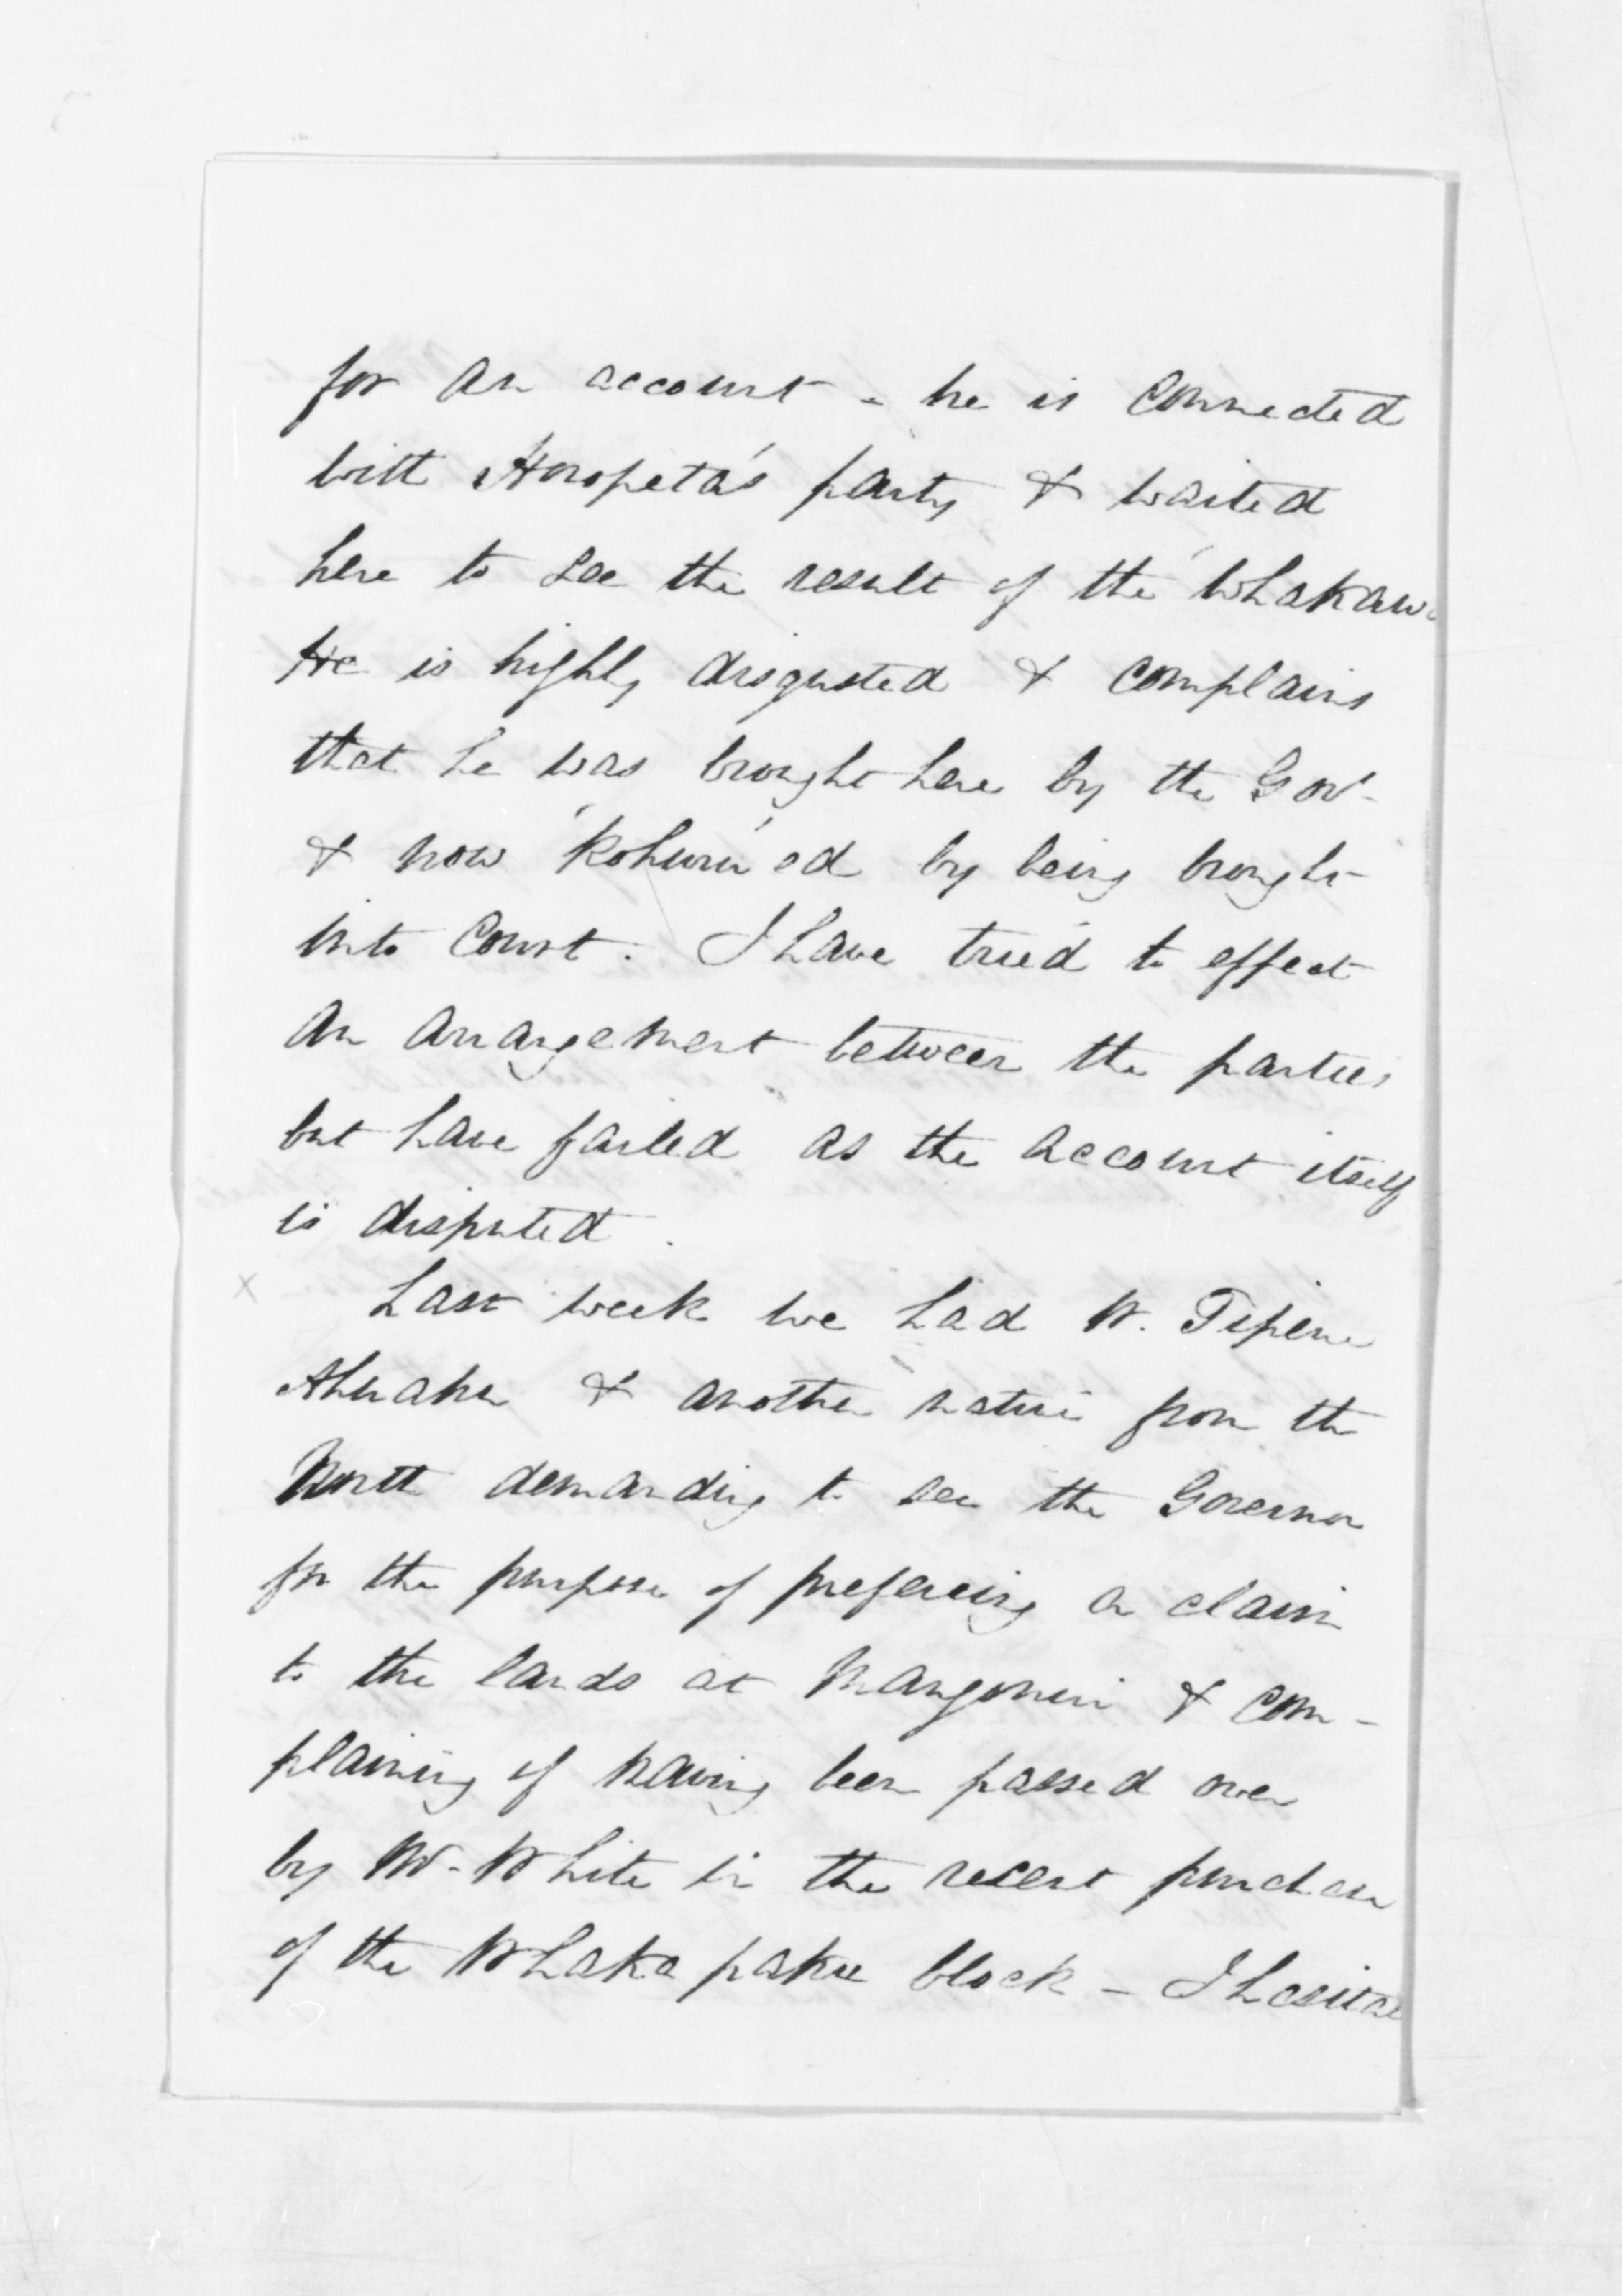 for an account - he is connected
with Horopeta's party & waited
here to see the result of the 'Whakawa
He is highly disgusted & complains
that he was brought here by the Gov.
& now 'Kohuru'ed by being brought
into Court. I have tried to effect
an arrangement between the parties
but have failed as the account itself
is disputed.
x Last week we had W. Tipene
& another native from the
North demanding to see the Governor
for the purpose of prefering a claim
to the lands at Mangonui & com-
plaining of having been passed over
by Mr. White in the recent purchase
of the Whakapaku block - I hesitate